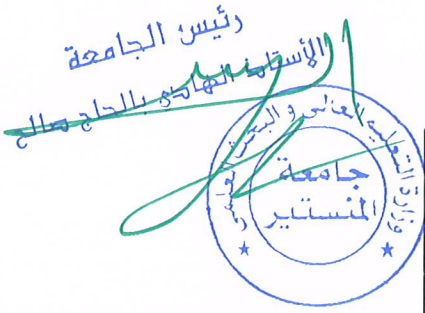 رئيس الجامعة
الأستاذ الهادي بالحاج صالح
وزارة التعليم العالي و البحث العلمي
جامعة
المنستير